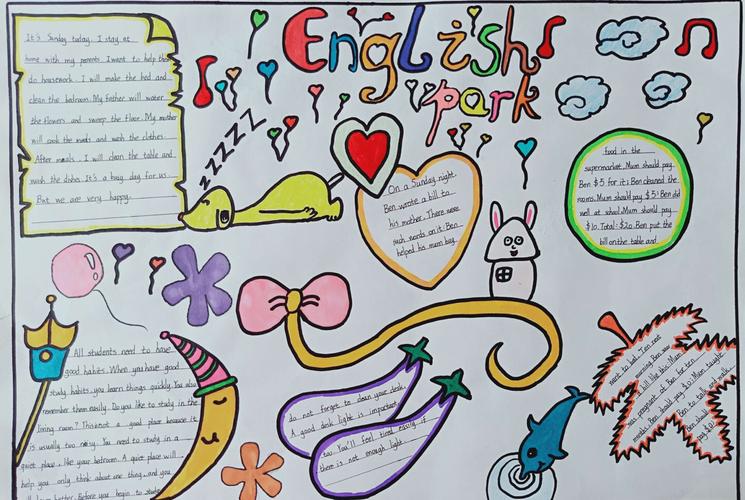 English
park
It's Sunday today. I stay at
home with my parents. I want to help them
do housework. I will make the bed and
clean the bedroom. My father will water
the flowers and sweep the floor. My mother
will cook the meals and wash the clothes.
After meals, I will clean the table and
wash the dishes. It's a busy day for us.
But we are very happy.
zzzzz
On a Sunday night
Ben wrote a bill to
his mother. There were
such words on it: Ben
helped his mum buy
food in the
supermarket. Mum should pay
Ben $5 for it; Ben cleaned the
rooms. Mum should pay $5; Ben did
well at school. Mum should pay
$10. Total: $20. Ben put the
bill on the table and
went to bed.
morning Ben saw
a bill like this: Mum
was pregnant of Ben for ten
months. Ben should pay $0; Mum taught
Ben to talk and walk.
Ben should
pay $0;
All students need to have
good habits. When you have good
study habits, you learn things quickly. You also
remember them easily. Do you like to study in the
living room? This is not a good place because it
is usually too noisy. You need to study in a
quiet place, like your bedroom. A quiet place will
help you only think about one thing, and you
better. Before you begin to study
do not forget to clean your desk.
A good desk light is important
too. You'll feel tired easily if
there is not enough light.